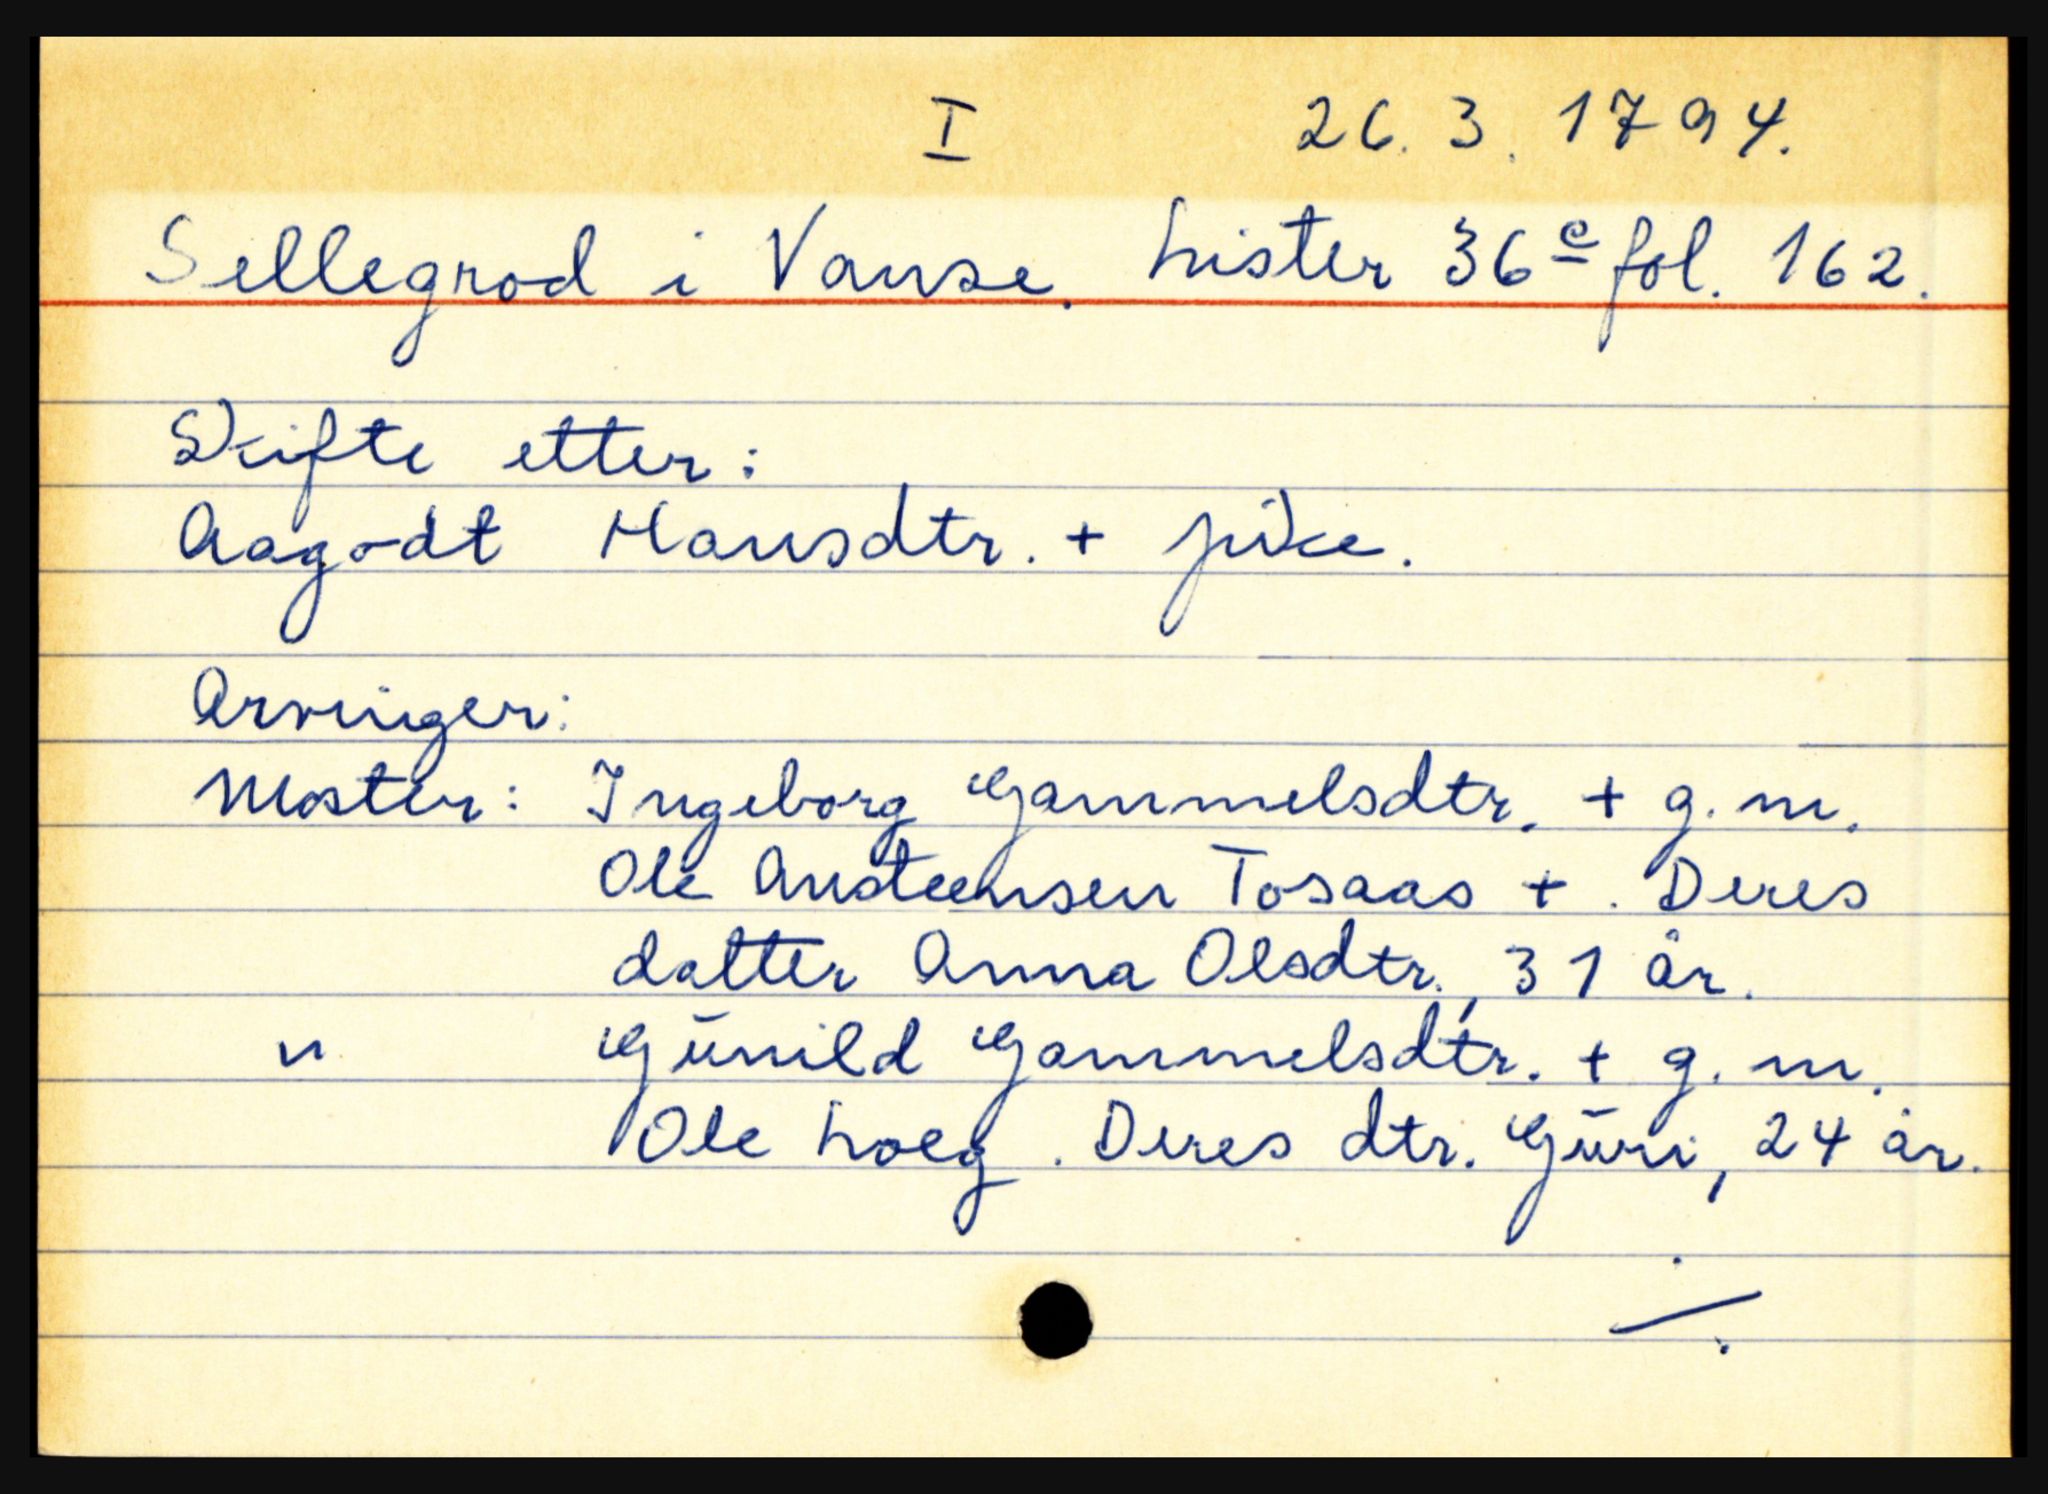 I 26. 3. 1794.
Sellegrod i Vanse. Lister 36 e fol. 162.
Skifte etter:
Aagodt Hansdtr. + pike.
Arvinger:
Moster: Ingeborg Gammelsdtr. + g. m.
Ole Austeensen Tosaas +. Deres
datter Anna Olsdtr., 31 år.
" Gŭnild Gammelsdtr. + g. m.
Ole Loeg. Deres dtr. Gŭri, 24 år.